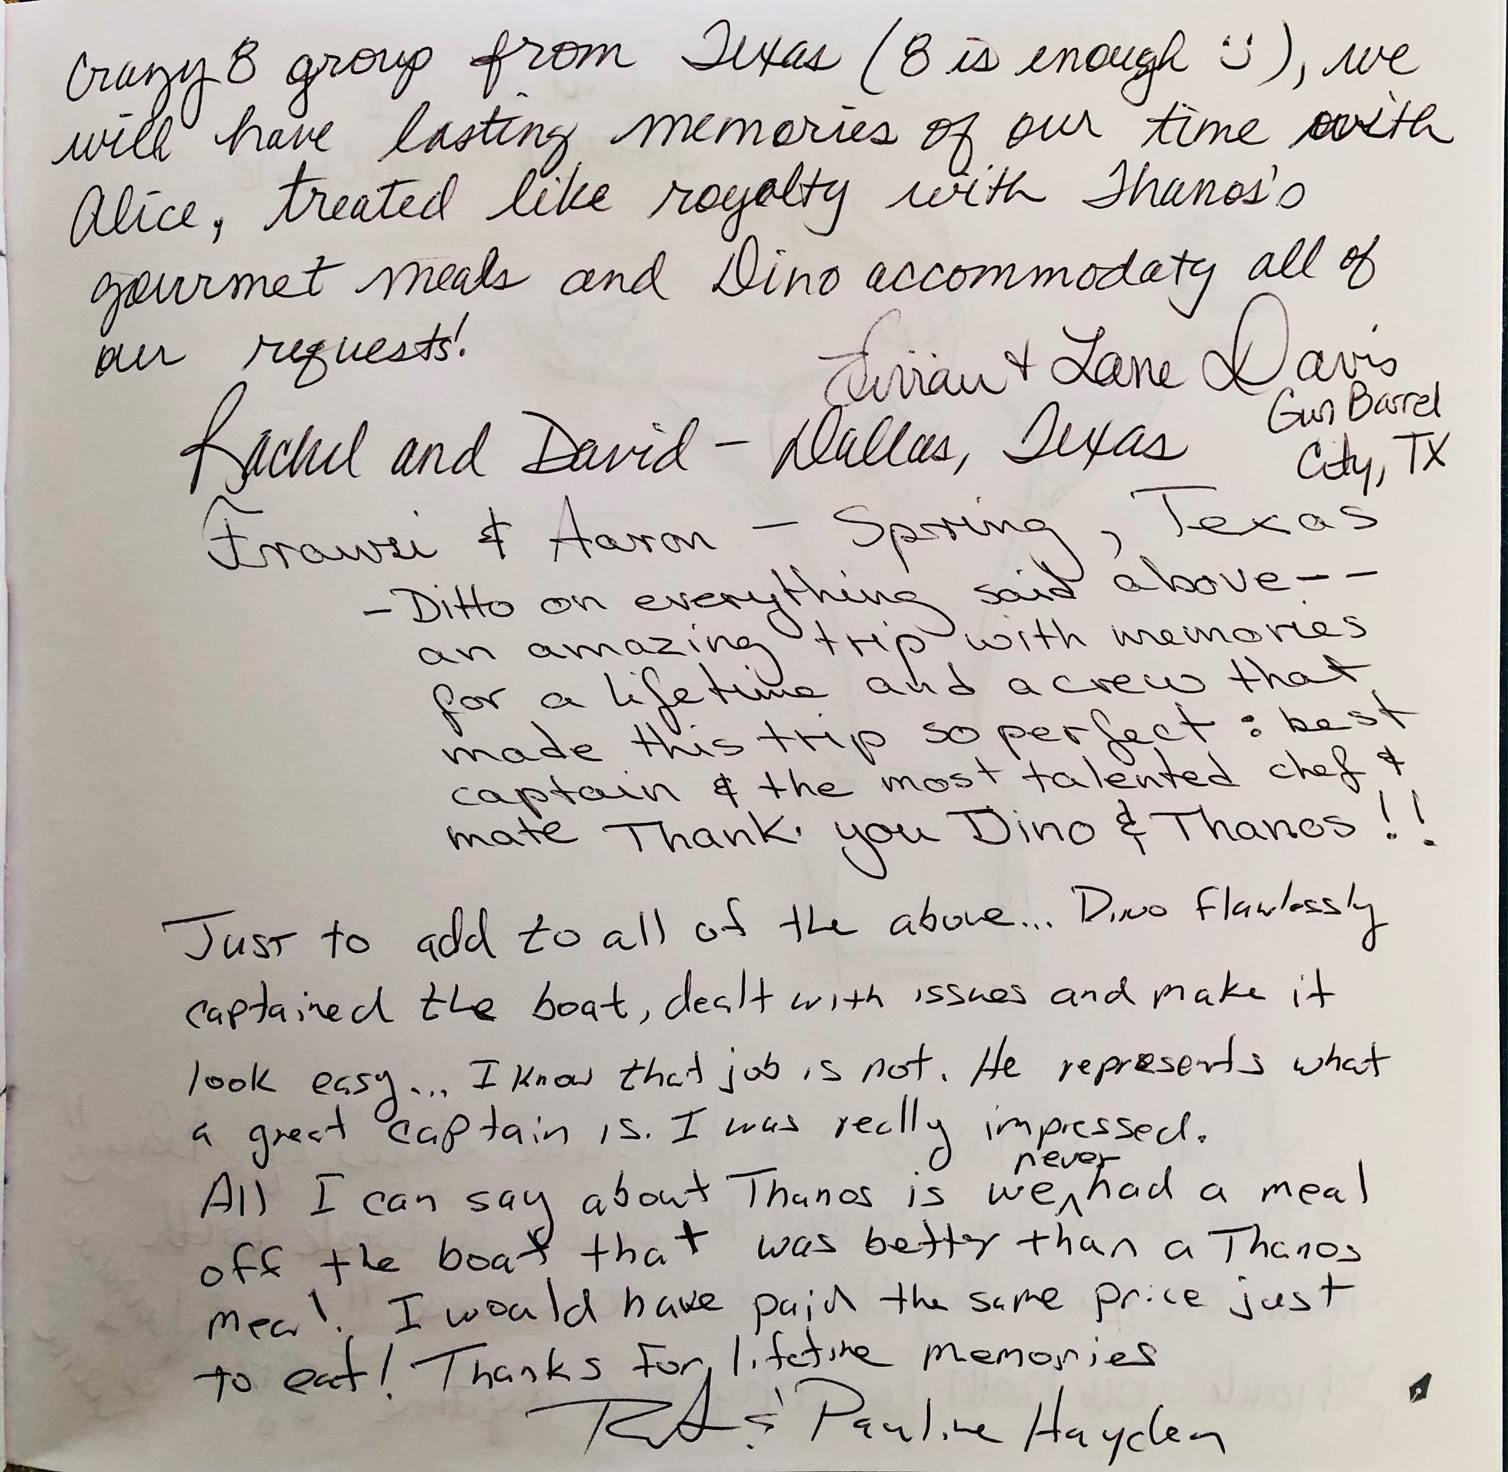 Crazy 8 group from Texas (8 is enough :)), we
will have lasting memories of our time with
Alice, treated like royalty with Thanos's
gourmet meals and Dino accommodaty all of
our requests!
& Lane Davis
Gun Barrel
City, TX
Rachel and David – Dallas, Texas
& Aaron – Spring, Texas
– Ditto on everything said above --
an amazing trip with memories
for a lifetime and a crew that
made this trip so perfect : best
captain & the most talented chef &
mate Thank you Dino & Thanos!!
Just to add to all of the above... Dino flawlessly
captained the boat, dealt with issues and make it
look easy... I know that job is not. He represents what
a great captain is. I was really impressed.
never
All I can say about Thanos is we^had a meal
off the boat that was better than a Thanos
meal. I would have paid the same price just
to eat! Thanks for lifetime memories
Pauline Hayden